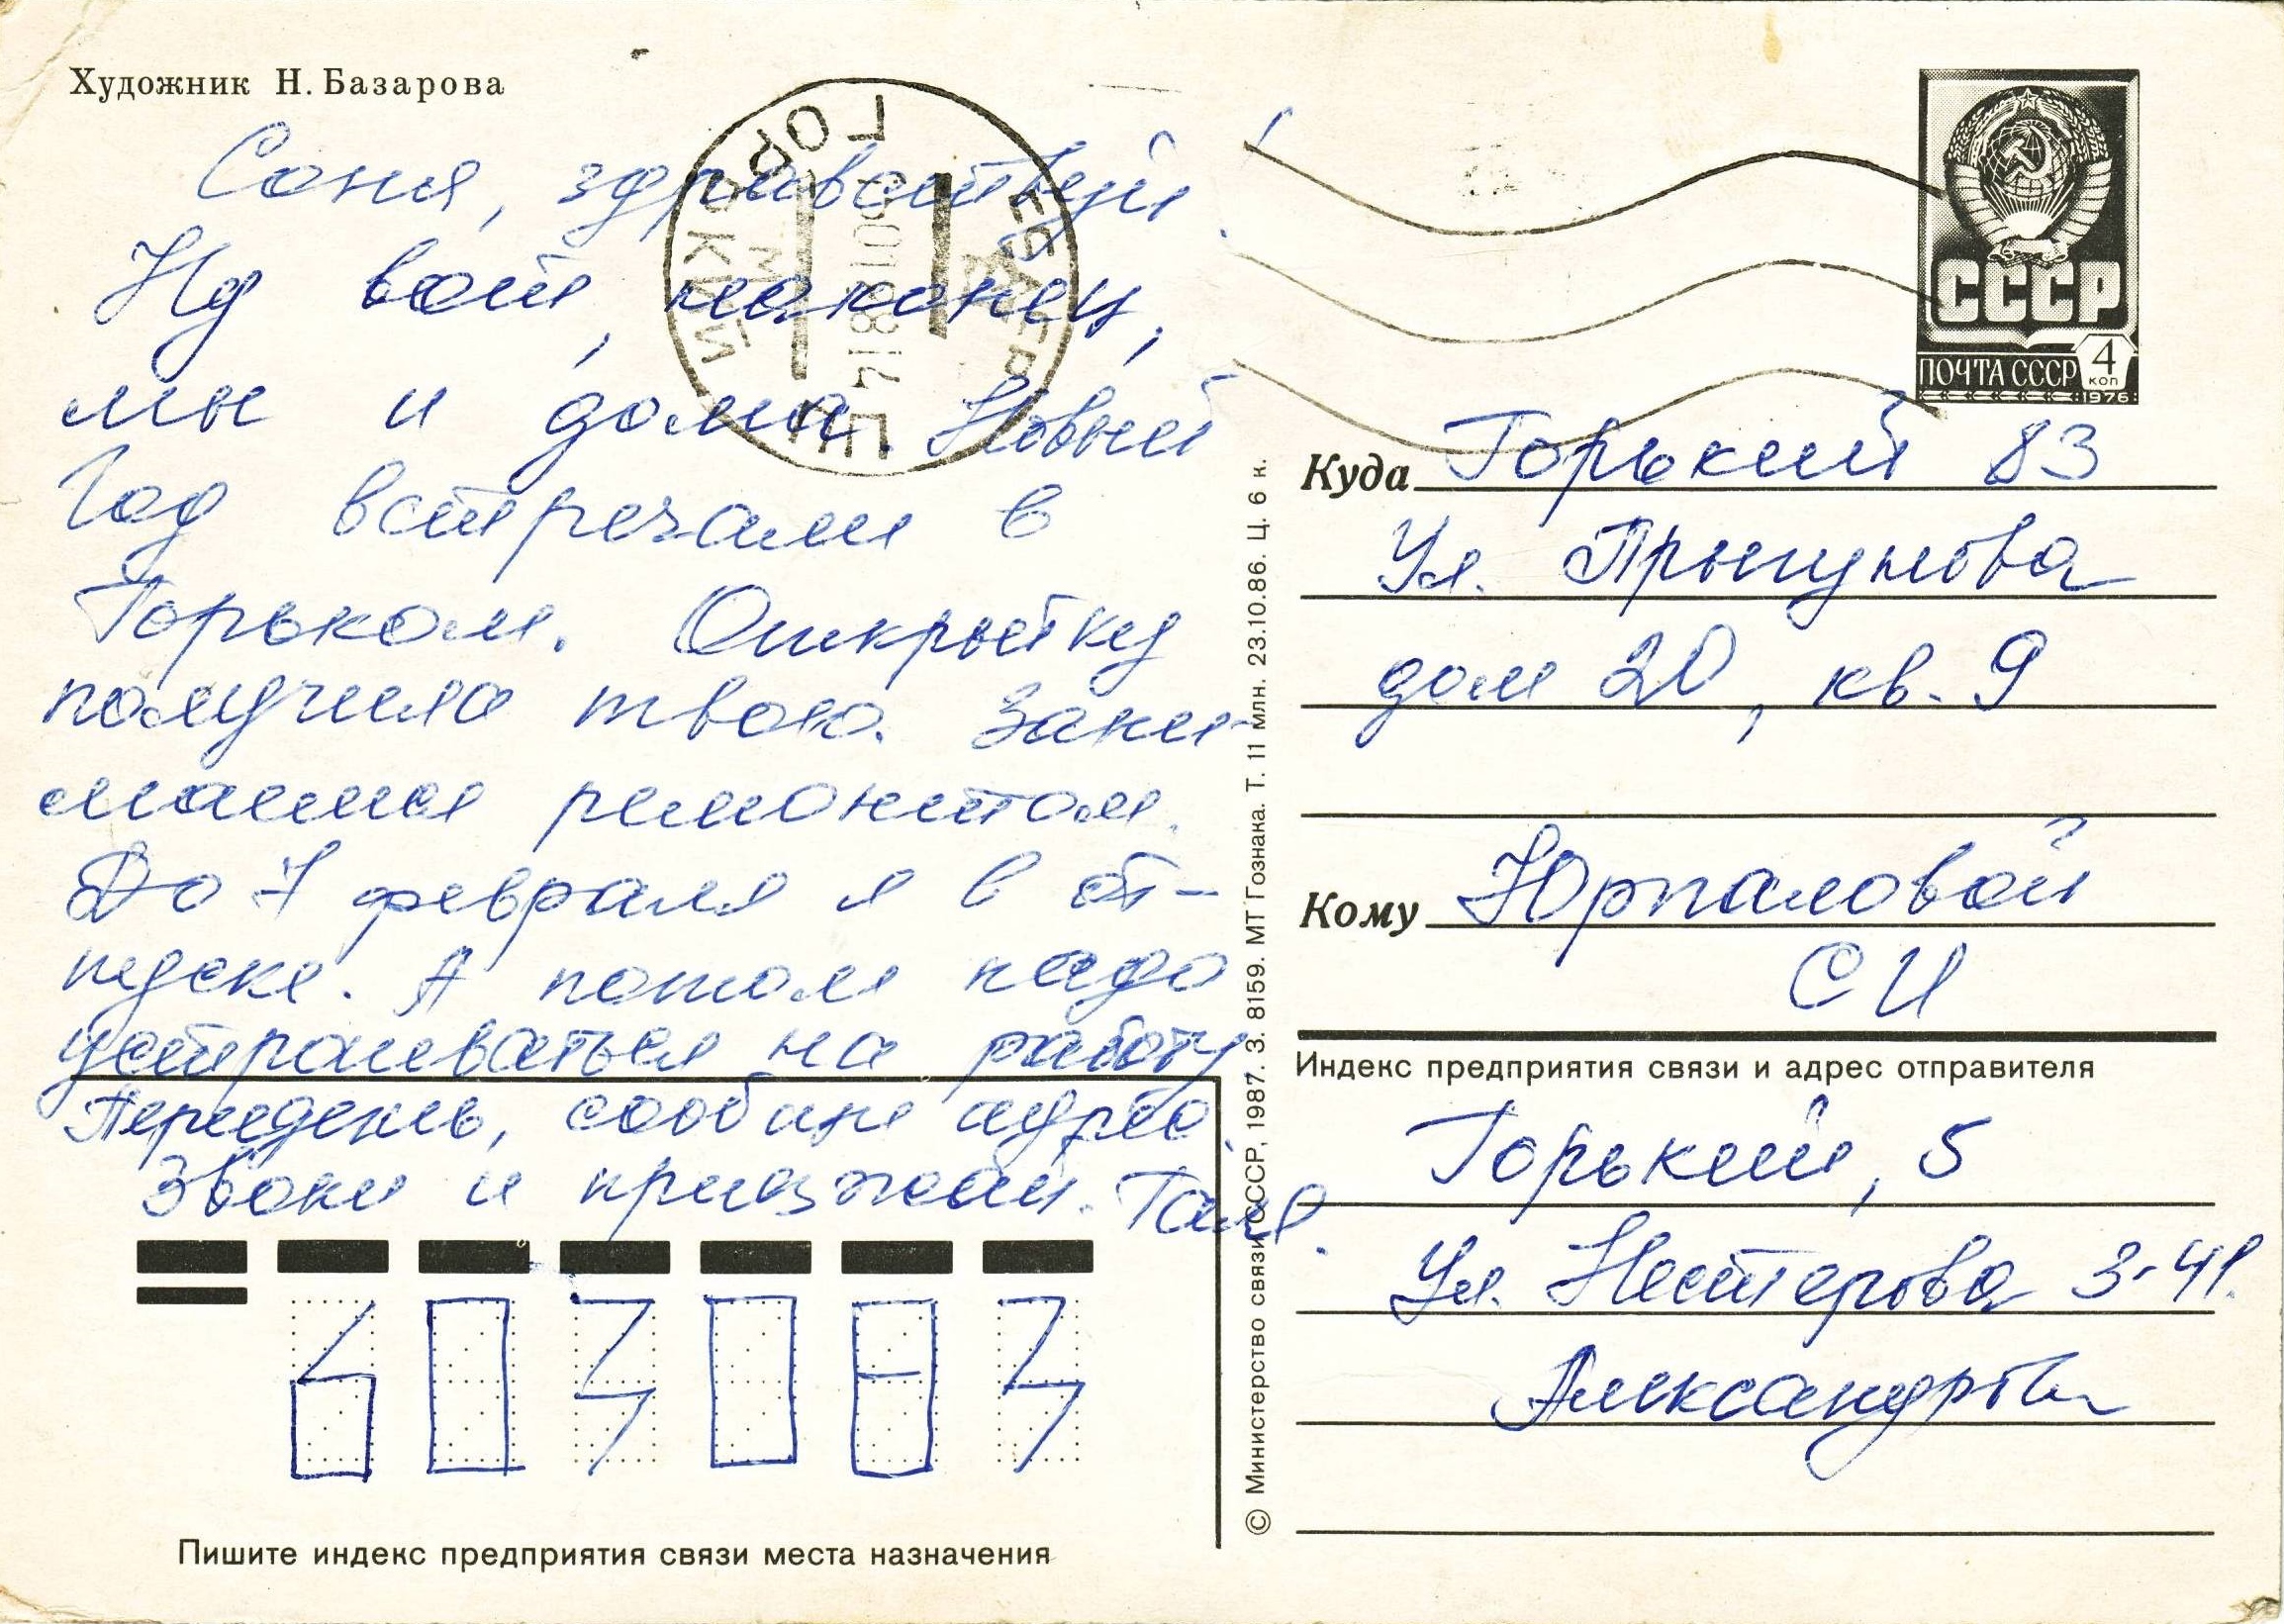 Художник Н. Базарова
Соня, здравствуй!
Ну вот, наконец,
мы и дома. Новый
Год встречали в
Горьком. Открытку
получила твою. Зани-
маемся ремонтом.
До 7 февраля я в от-
пуске. А потом надо
устраиваться на работу
Переедешь, сообщи адрес.
Звони и приезжай. Галя.
603083
Пишите индекс предприятия связи места назначения
© Министерство связи СССР, 1987. З. 8159. МТ Гознака. Т. 11 млн. 23.10.86. Ц. 6 к.
ГОРЬКИЙ
СССР
ПОЧТА СССР 4 КОП
1976
Куда Горький 83
Ул. Прыгунова
дом 20, кв. 9
Кому Юрпаловой
СИ
Индекс предприятия связи и адрес отправителя
Горький, 5
Ул. Нестерова 3-41.